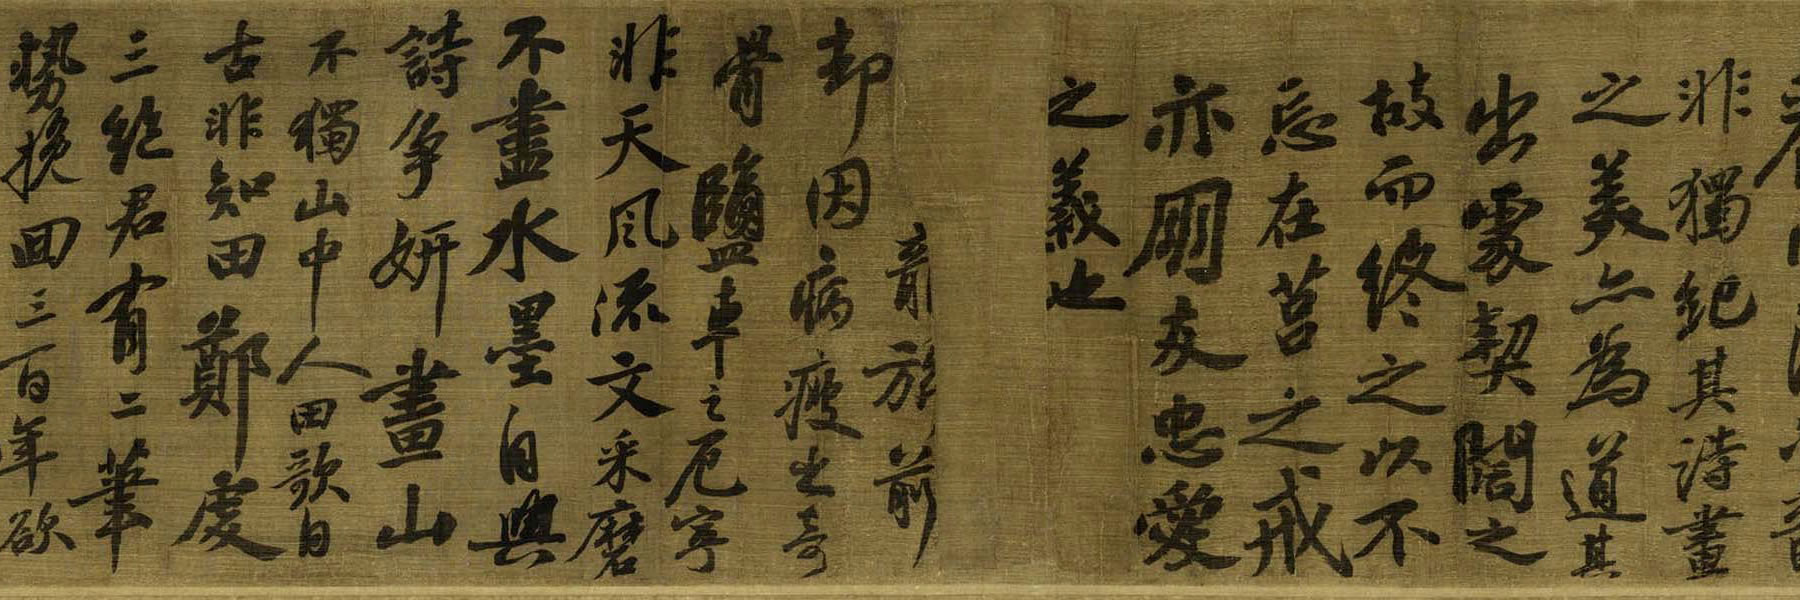 非獨紀其詩畫
之美亦為道其
出處契闊之
故而終之以不
忘在莒之戒
亦朋友忠愛
之義也
龍旂前
却因病瘦出奇
骨鹽車之厄寧
非天風流文采磨
不盡水墨自與
詩爭妍畫山
不獨山中人田歌自
古非知田鄭虔
三絶君有二筆
勢挽回三百年欲